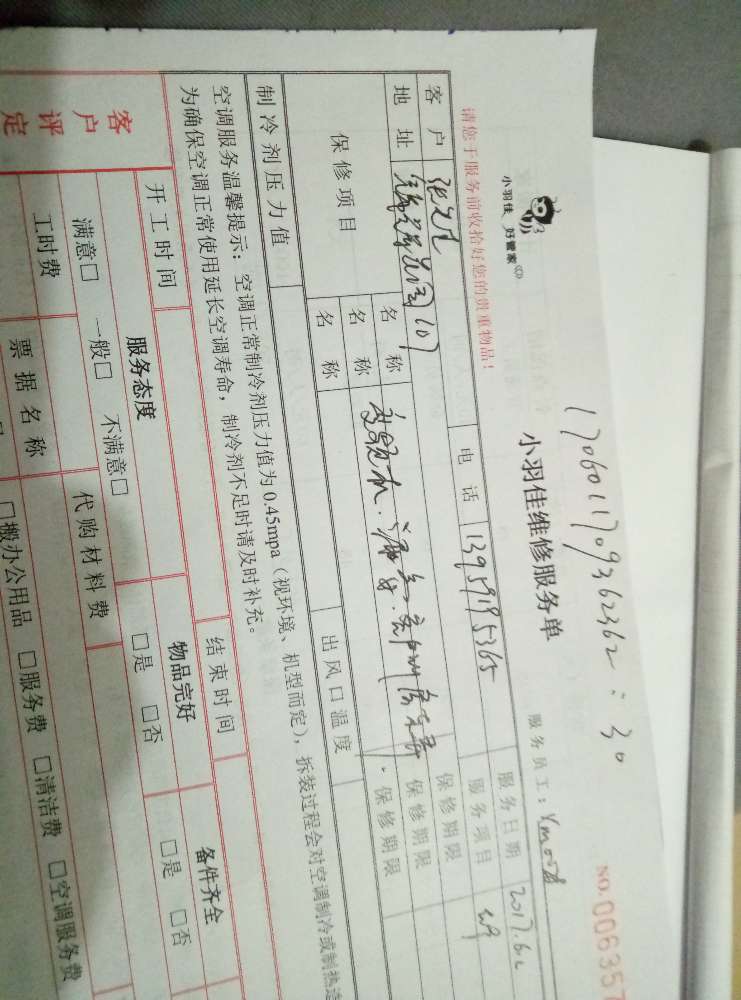 1706011709362362:30
小羽佳 好管家(C)
小羽佳维修服务单
NO. 006357
请您于服务前收拾好您的贵重物品!
服务员工:
客户 电话 13959195365 服务日期 2017.6.2
地址 107 服务项目
保修项目 名称 保修期限
名称 保修期限
名称 保修期限
制冷剂压力值 出风口温度
空调服务温馨提示:空调正常制冷剂压力值为0.45mpa(视环境、机型而定),拆装过程会对空调制冷或制热造
为确保空调正常使用延长空调寿命,制冷剂不足时请及时补充。
开工时间 结束时间
客户评定 服务态度 物品完好 备件齐全
满意□ 一般□ 不满意□ □是 □否 □是 □否
工时费 代购材料费
票据名称 □搬办公用品 □服务费 □清洁费 □空调服务费